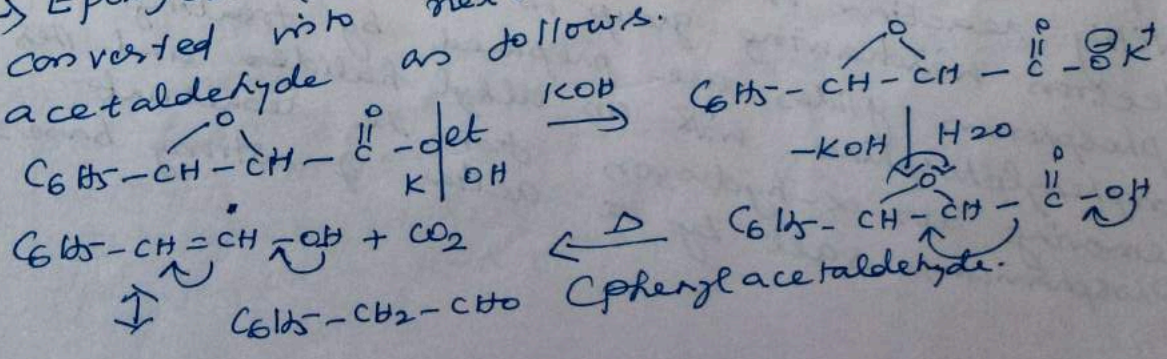 converted into
acetaldehyde as follows.
C6H5-CH-CH-C-oet KOH → C6H5-CH-CH-C-O K+
O O K | OH O O ⊖
-KOH | H2O
C6H5-CH=CH-OH + CO2 ← Δ C6H5-CH-CH-C-OH
O O
↕ C6H5-CH2-CHO Cphenylacetaldehyde.